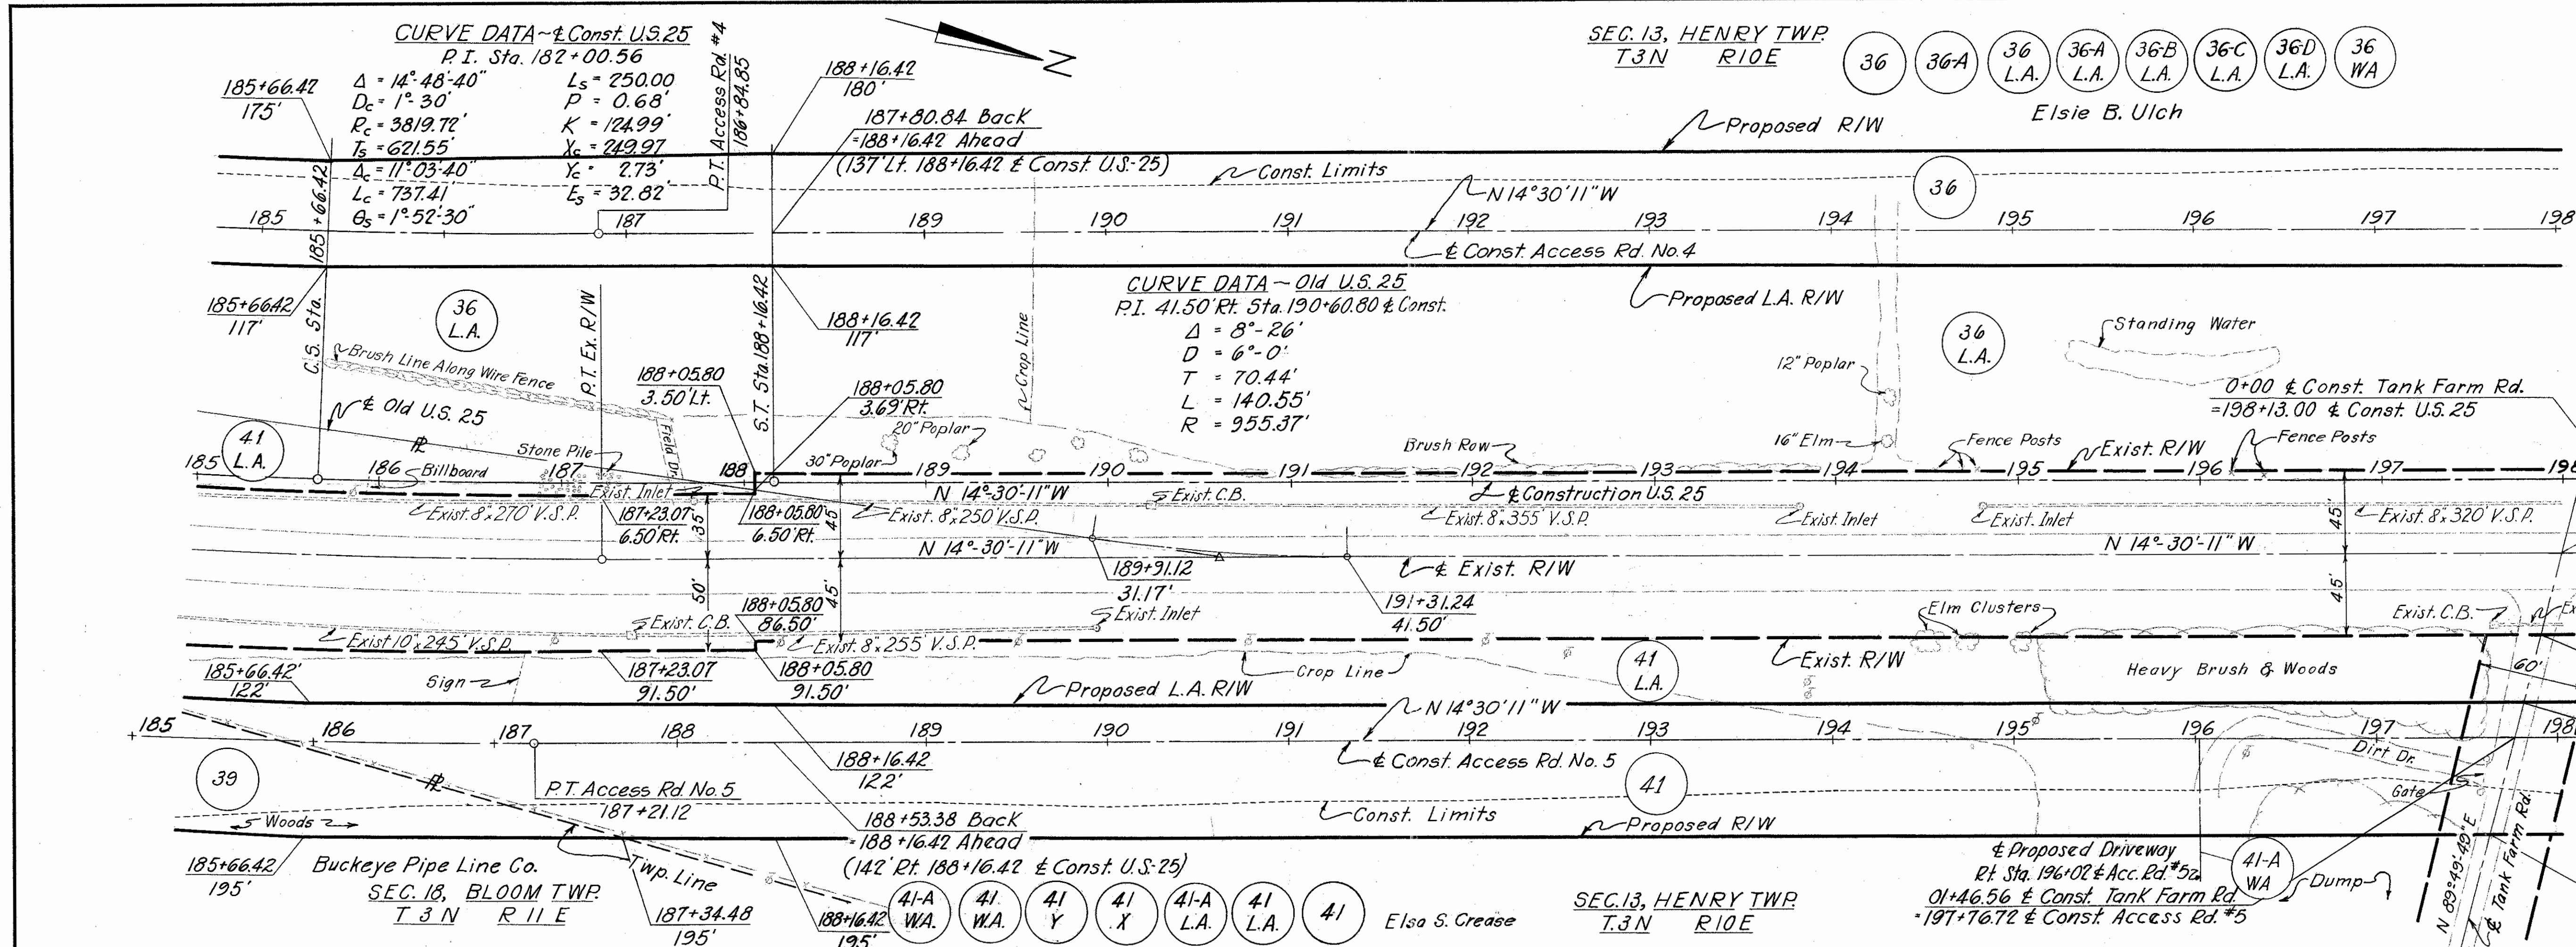 CURVE DATA~℄ Const. U.S. 25
P.I. Sta. 182+00.56
Δ = 14°-48'-40"
Dc = 1°-30'
Rc = 3819.72'
Ts = 621.55'
Δc = 11°-03'-40"
Lc = 737.41'
θs = 1°-52'-30"
Ls = 250.00
P = 0.68'
K = 124.99'
Xc = 249.97
Yc = 2.73'
Es = 32.82'
P.T. Access Rd. #4
186+84.85
N
185+66.42
175'
188+16.42
180'
187+80.84 Back
=188+16.42 Ahead
(137' Lt. 188+16.42 ℄ Const. U.S.-25)
SEC. 13, HENRY TWP.
T 3 N R 10 E
36
36-A
36 L.A.
36-A L.A.
36-B L.A.
36-C L.A.
36-D L.A.
36 WA
Elsie B. Ulch
Proposed R/W
Const. Limits
N 14°30'11" W
36
185 187 189 190 191 192 193 194 195 196 197 198
℄ Const. Access Rd. No. 4
Proposed L.A. R/W
185+66.42
C.S. Sta.
185+66.42
117'
36 L.A.
P.T. Ex. R/W
S.T. Sta. 188+16.42
188+16.42
117'
CURVE DATA ~ Old U.S. 25
P.I. 41.50' Rt. Sta. 190+60.80 ℄ Const.
Δ = 8°-26'
D = 6°-0'
T = 70.44'
L = 140.55'
R = 955.37'
Crop Line
Brush Line Along Wire Fence
℄ Old U.S. 25
188+05.80
3.50' Lt.
188+05.80
3.69' Rt.
36 L.A.
Standing Water
12" Poplar
0+00 ℄ Const. Tank Farm Rd.
=198+13.00 ℄ Const. U.S. 25
41 L.A.
PL
Stone Pile
Field Dr.
20" Poplar
30" Poplar
Brush Row
16" Elm
Fence Posts
Exist. R/W
Fence Posts
185 186 187 188 189 190 191 192 193 194 195 196 197
Billboard
Exist. Inlet
N 14°-30'-11" W
Exist. C.B.
℄ Construction U.S. 25
Exist. 8"x270' V.S.P.
187+23.07
6.50' Rt.
35'
188+05.80
6.50' Rt.
45'
Exist. 8"x250' V.S.P.
Exist. 8"x355' V.S.P.
Exist. Inlet
Exist. Inlet
45'
Exist. 8"x320' V.S.P.
N 14°-30'-11" W
N 14°-30'-11" W
189+91.12
31.17'
℄ Exist. R/W
191+31.24
41.50'
50'
45'
45'
188+05.80
86.50'
Exist. C.B.
Exist. Inlet
Elm Clusters
Exist. C.B.
Exist 10"x245' V.S.P.
Exist. 8"x255' V.S.P.
185+66.42'
122'
Sign
187+23.07
91.50'
188+05.80
91.50'
Crop Line
41 L.A.
Exist. R/W
Heavy Brush & Woods
60'
Proposed L.A. R/W
N 14°30'11" W
185 186 187 188 189 190 191 192 193 194 195 196 197 198
℄ Const. Access Rd. No. 5
39
PL
P.T. Access Rd. No. 5
187+21.12
188+16.42
122'
41
Dirt Dr.
Gate
Woods
Const. Limits
Proposed R/W
188+53.38 Back
=188+16.42 Ahead
(142' Rt. 188+16.42 ℄ Const. U.S.-25)
185+66.42
195'
Buckeye Pipe Line Co.
SEC. 18, BLOOM TWP.
T 3 N R 11 E
Twp. Line
187+34.48
195'
188+16.42
195'
41-A W.A.
41 W.A.
41 Y
41 X
41-A L.A.
41 L.A.
41
Elsa S. Crease
SEC. 13, HENRY TWP.
T. 3 N R 10 E
℄ Proposed Driveway
Rt. Sta. 196+02 ℄ Acc. Rd. #5
01+46.56 ℄ Const. Tank Farm Rd.
=197+76.72 ℄ Const. Access Rd. #5
41-A WA
Dump
N 89°-49'-49" E
℄ Tank Farm Rd.